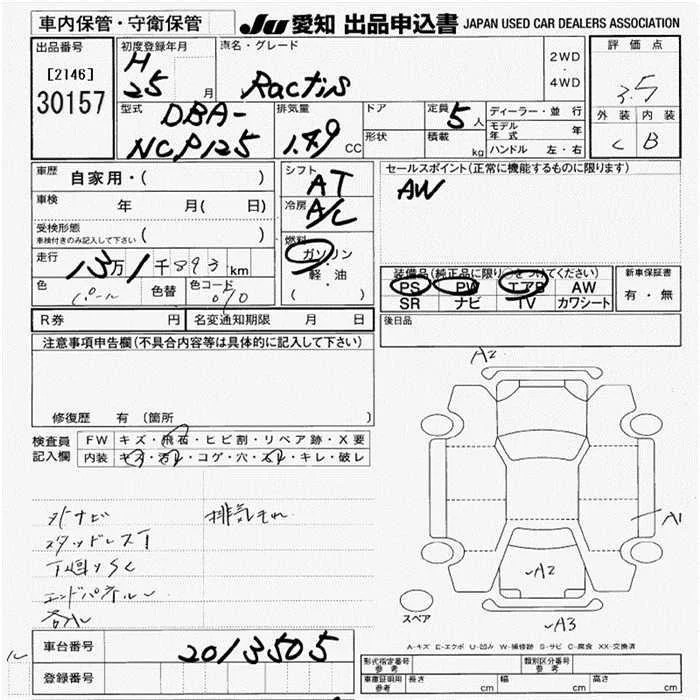 車内保管・守衛保管
JU 愛知 出品申込書 JAPAN USED CAR DEALERS ASSOCIATION
出品番号
[2146]
30157
初度登録年月
H
25 月
車名・グレード
Ractis
2WD
・
4WD
評価点
3.5
外装 内装
C B
型式
DBA-
NCP125
排気量
1.49 CC
ドア
形状
定員 5 人
積載 kg
ディーラー・並行
モデル年式 年
ハンドル 左・右
車歴
自家用・( )
車検
年 月( 日)
受検形態
車検付きのみ記入して下さい ( )
走行
13万1千893km
色
パール
色替
色コード
070
シフト
AT
冷房
A/C
燃料
ガソリン
・
軽・油
( )
セールスポイント(正常に機能するものに限ります)
AW
装備品(純正品に限り○をつけてください)
PS PW エアB AW
SR ナビ TV カワシート
新車保証書
有・無
R券 円 名変通知期限 月 日
後日品
注意事項申告欄(不具合内容等は具体的に記入して下さい)
修復歴 有 (箇所 )
検査員
記入欄
FW キズ・飛石・ヒビ割・リペア跡・X要
内装 キズ・汚れ・コゲ・穴・スレ・キレ・破レ
外ナビ
スタッドレスT
下廻りSC
エンドパネル
排気もれ
A2
A1
A2
A3
スペア
A-キズ E-エクボ U-凹み W-補修跡 S-サビ C-腐食 XX-交換済
車台番号
2013505
登録番号
形式指定番号
参考
類別区分番号
参考
車庫証明用
参考
長さ cm 幅 cm 高さ cm